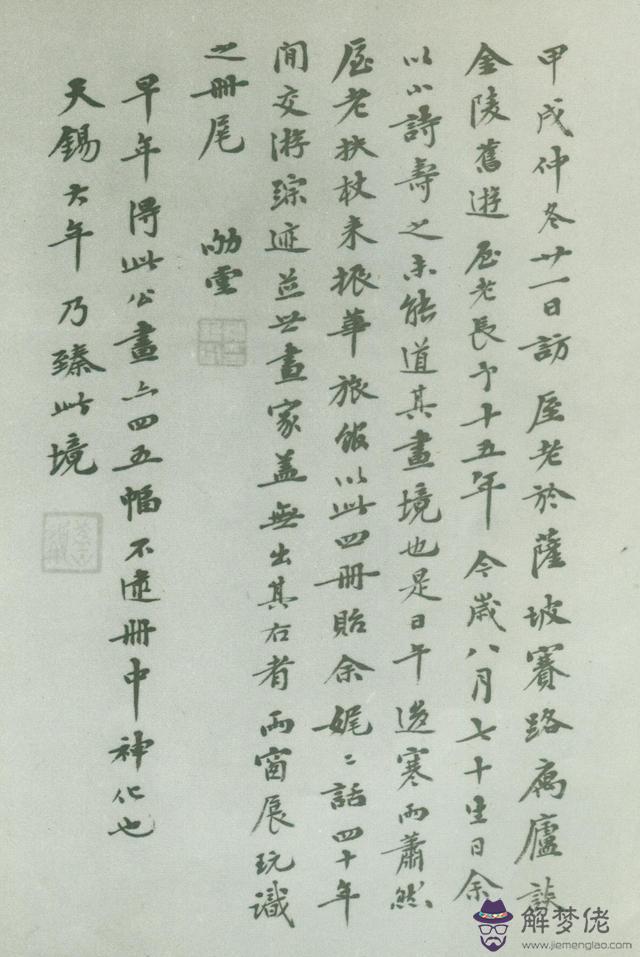 甲戌仲冬廿一日訪 厔老於薩坡賽路寓廬談
金陵舊遊 厔老長予十五年 今歲八月七十生日余
以小詩壽之未能道其畫境也是日午後寒雨蕭然
厔老扶杖來振華旅館以此四冊貽余娓〻話四十年
間交游踪迹並世畫家蓋無出其右者雨窗展玩識
之冊尾
早年得此公畫亦四五幅不逮冊中神化也
天錫大年乃臻此境
解梦佬
www.jiemenglao.com